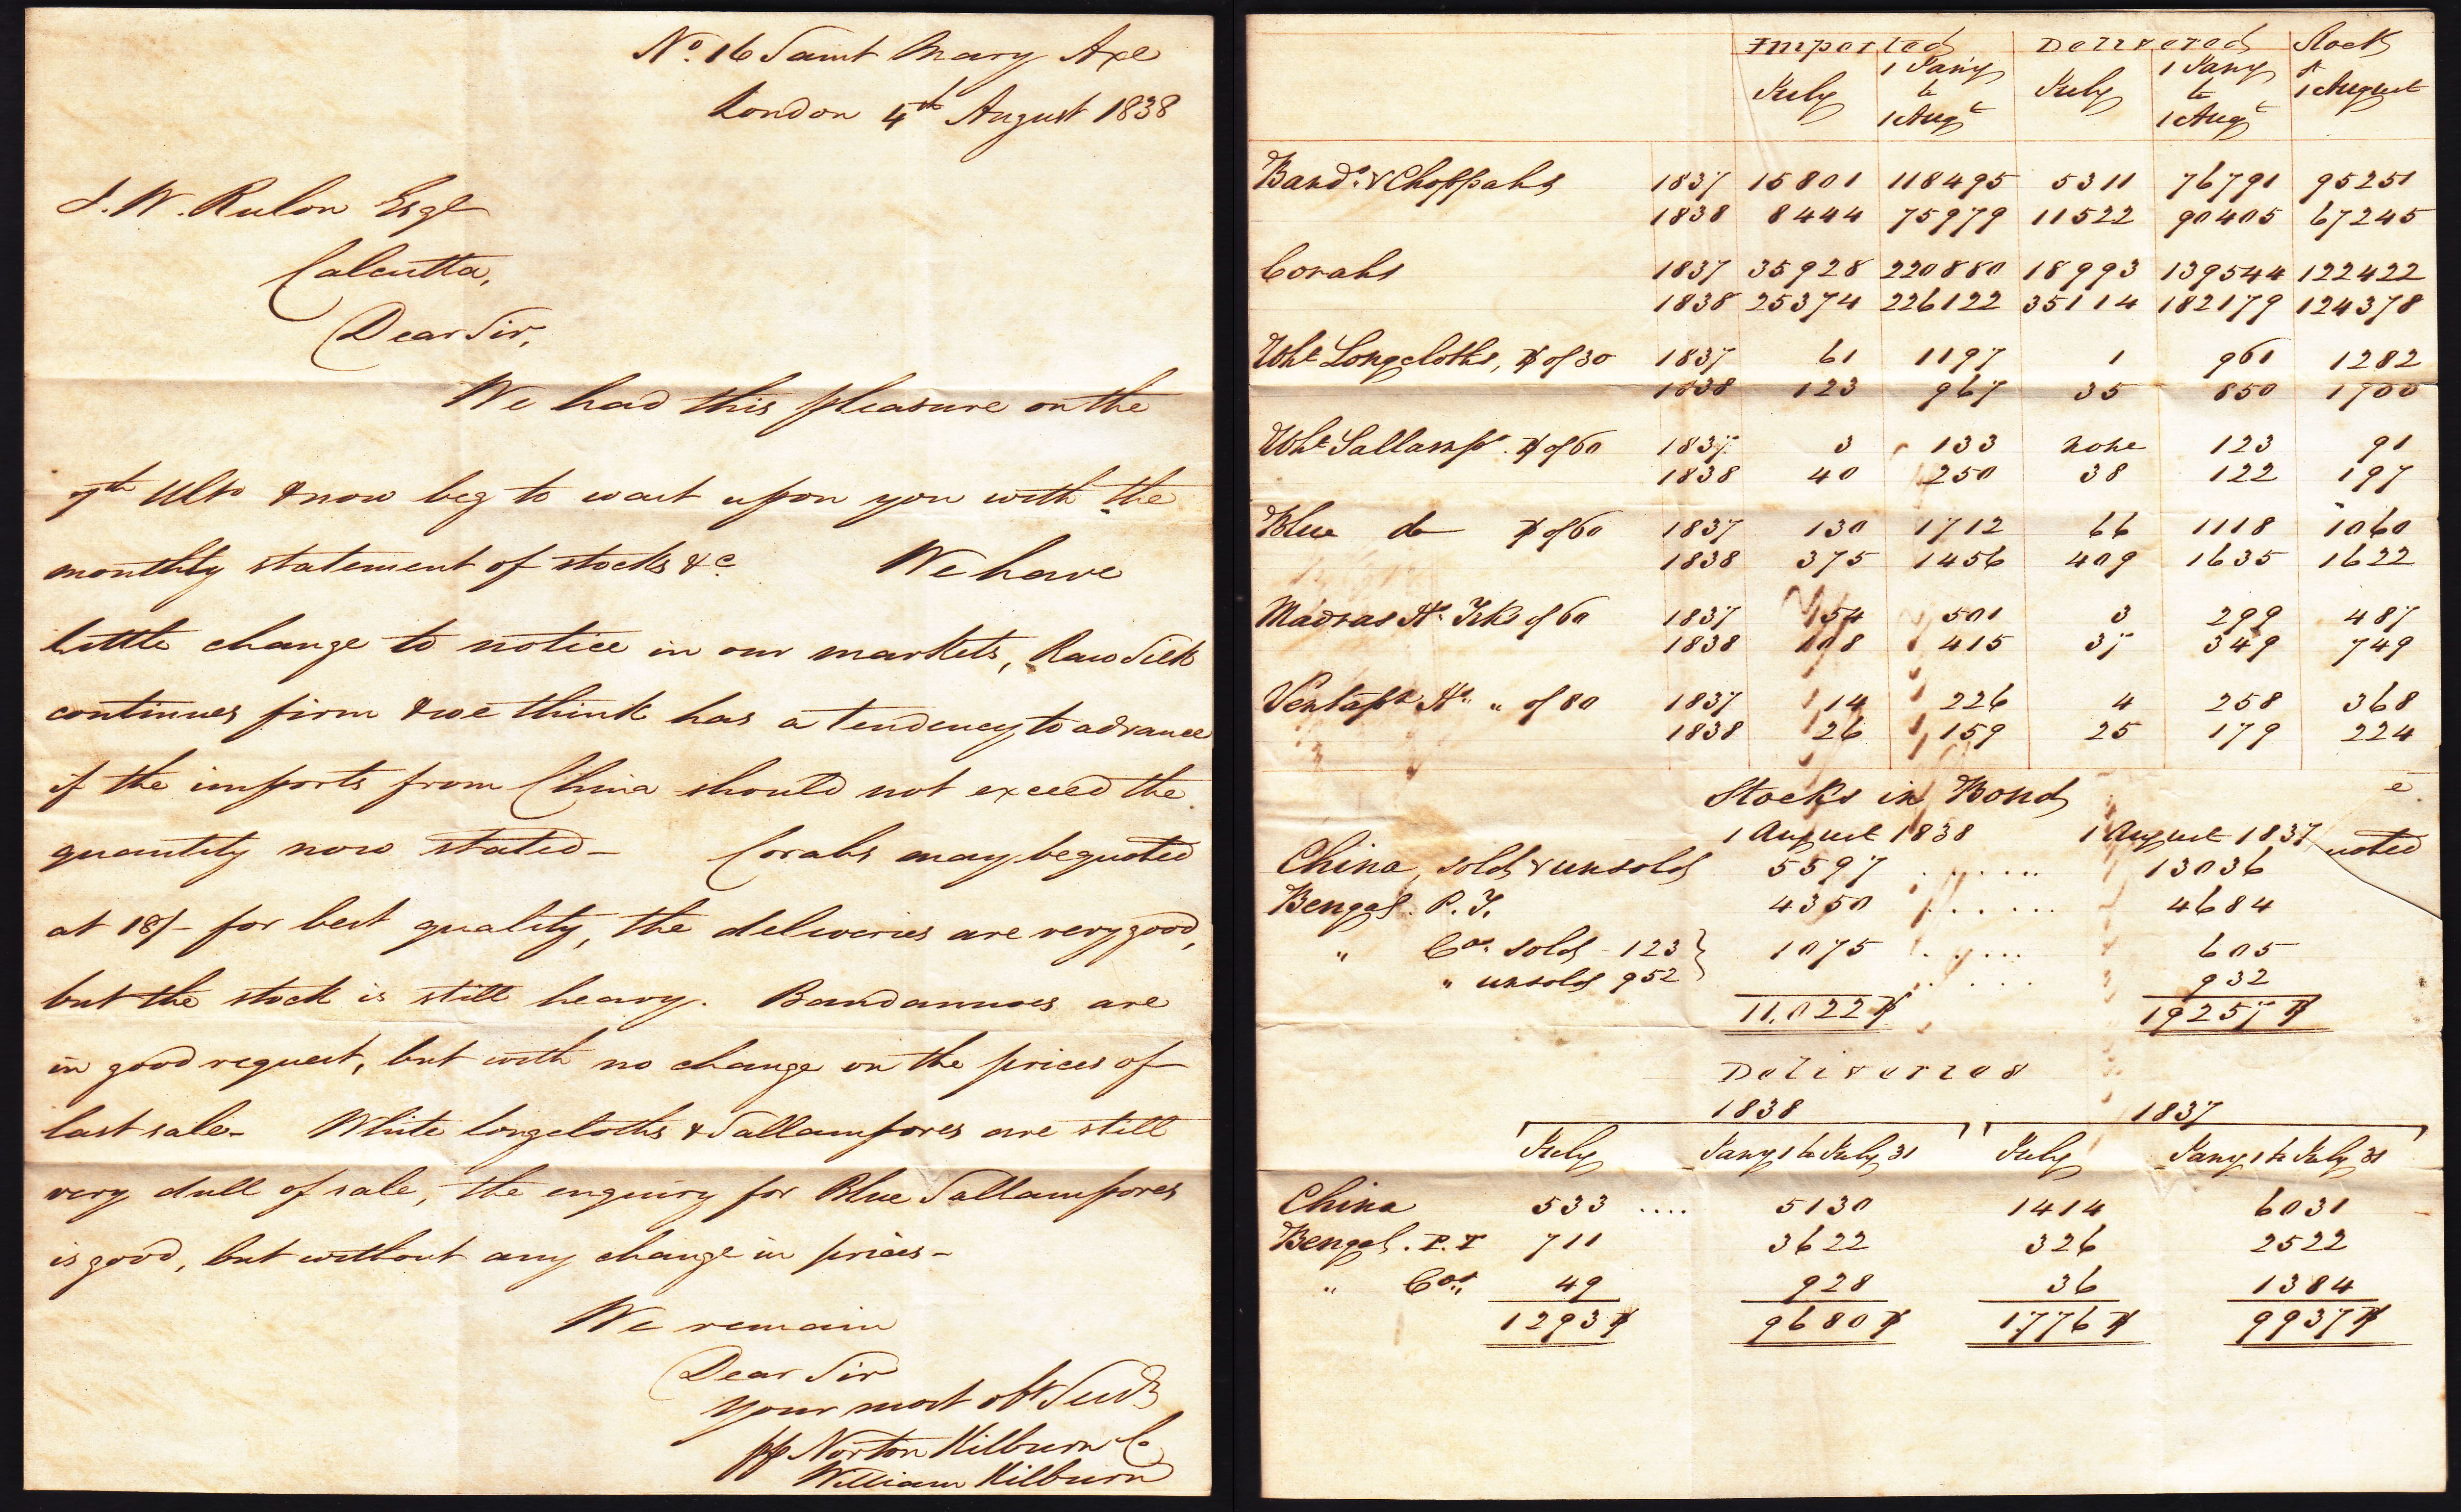 No. 16 Saint Mary Axe
London 4th August 1838
J. W. Rulon Esqr
Calcutta,
Dear Sir,
We had this pleasure on the
7th Ulto & now beg to wait upon you with the
monthly statement of stocks &c. We have
little change to notice in our markets, Raw Silk
continues firm & we think has a tendency to advance
if the imports from China should not exceed the
quantity now stated - Corahs may be quoted
at 18/- for best quality, the deliveries are very good,
but the stock is still heavy. Bandannoes are
in good request, but with no change on the prices of
last sale - White longcloths & Sallampores are still
very dull of sale, the enquiry for Blue Sallampores
is good, but without any change in prices -
We remain
Dear Sir
Your most obt Servts
pp Norton Kilburn Co
William Kilburn
Imported Delivered Stock
July 1 Jany to 1 Augt July 1 Jany to 1 Augt 1 August
Bands. & Choppahs 1837 15801 118495 5311 76791 95251
1838 8444 75979 11522 90405 67245
Corahs 1837 35928 220880 18993 139544 122422
1838 25374 226122 35114 182179 124378
Wht Longcloths, of 30 1837 61 1197 1 961 1282
1838 123 967 35 850 1700
Wht Sallamps. of 60 1837 3 133 none 123 91
1838 40 250 38 122 197
Blue do of 60 1837 130 1712 66 1118 1060
1838 375 1456 409 1635 1622
Madras Hs. of 60 1837 154 501 3 299 487
1838 108 415 37 349 749
Ventaps Hs. " of 80 1837 14 226 4 258 368
1838 26 159 25 179 224
Stocks in Bond
1 August 1838 1 August 1837
China, sold & unsold 5597 ...... 13036
Bengal. P. T. 4350 ...... 4684
" Cos. sold - 123 } 1075 ..... 605
" unsold 952 ..... 932
11.022 19257
Delivered
1838 1837
July Jany 1 to July 31 July Jany 1 to July 31
China 533 .... 5130 1414 6031
Bengal. P. T 711 3622 326 2522
" Cos., 49 928 36 1384
1293 9680 1776 9937